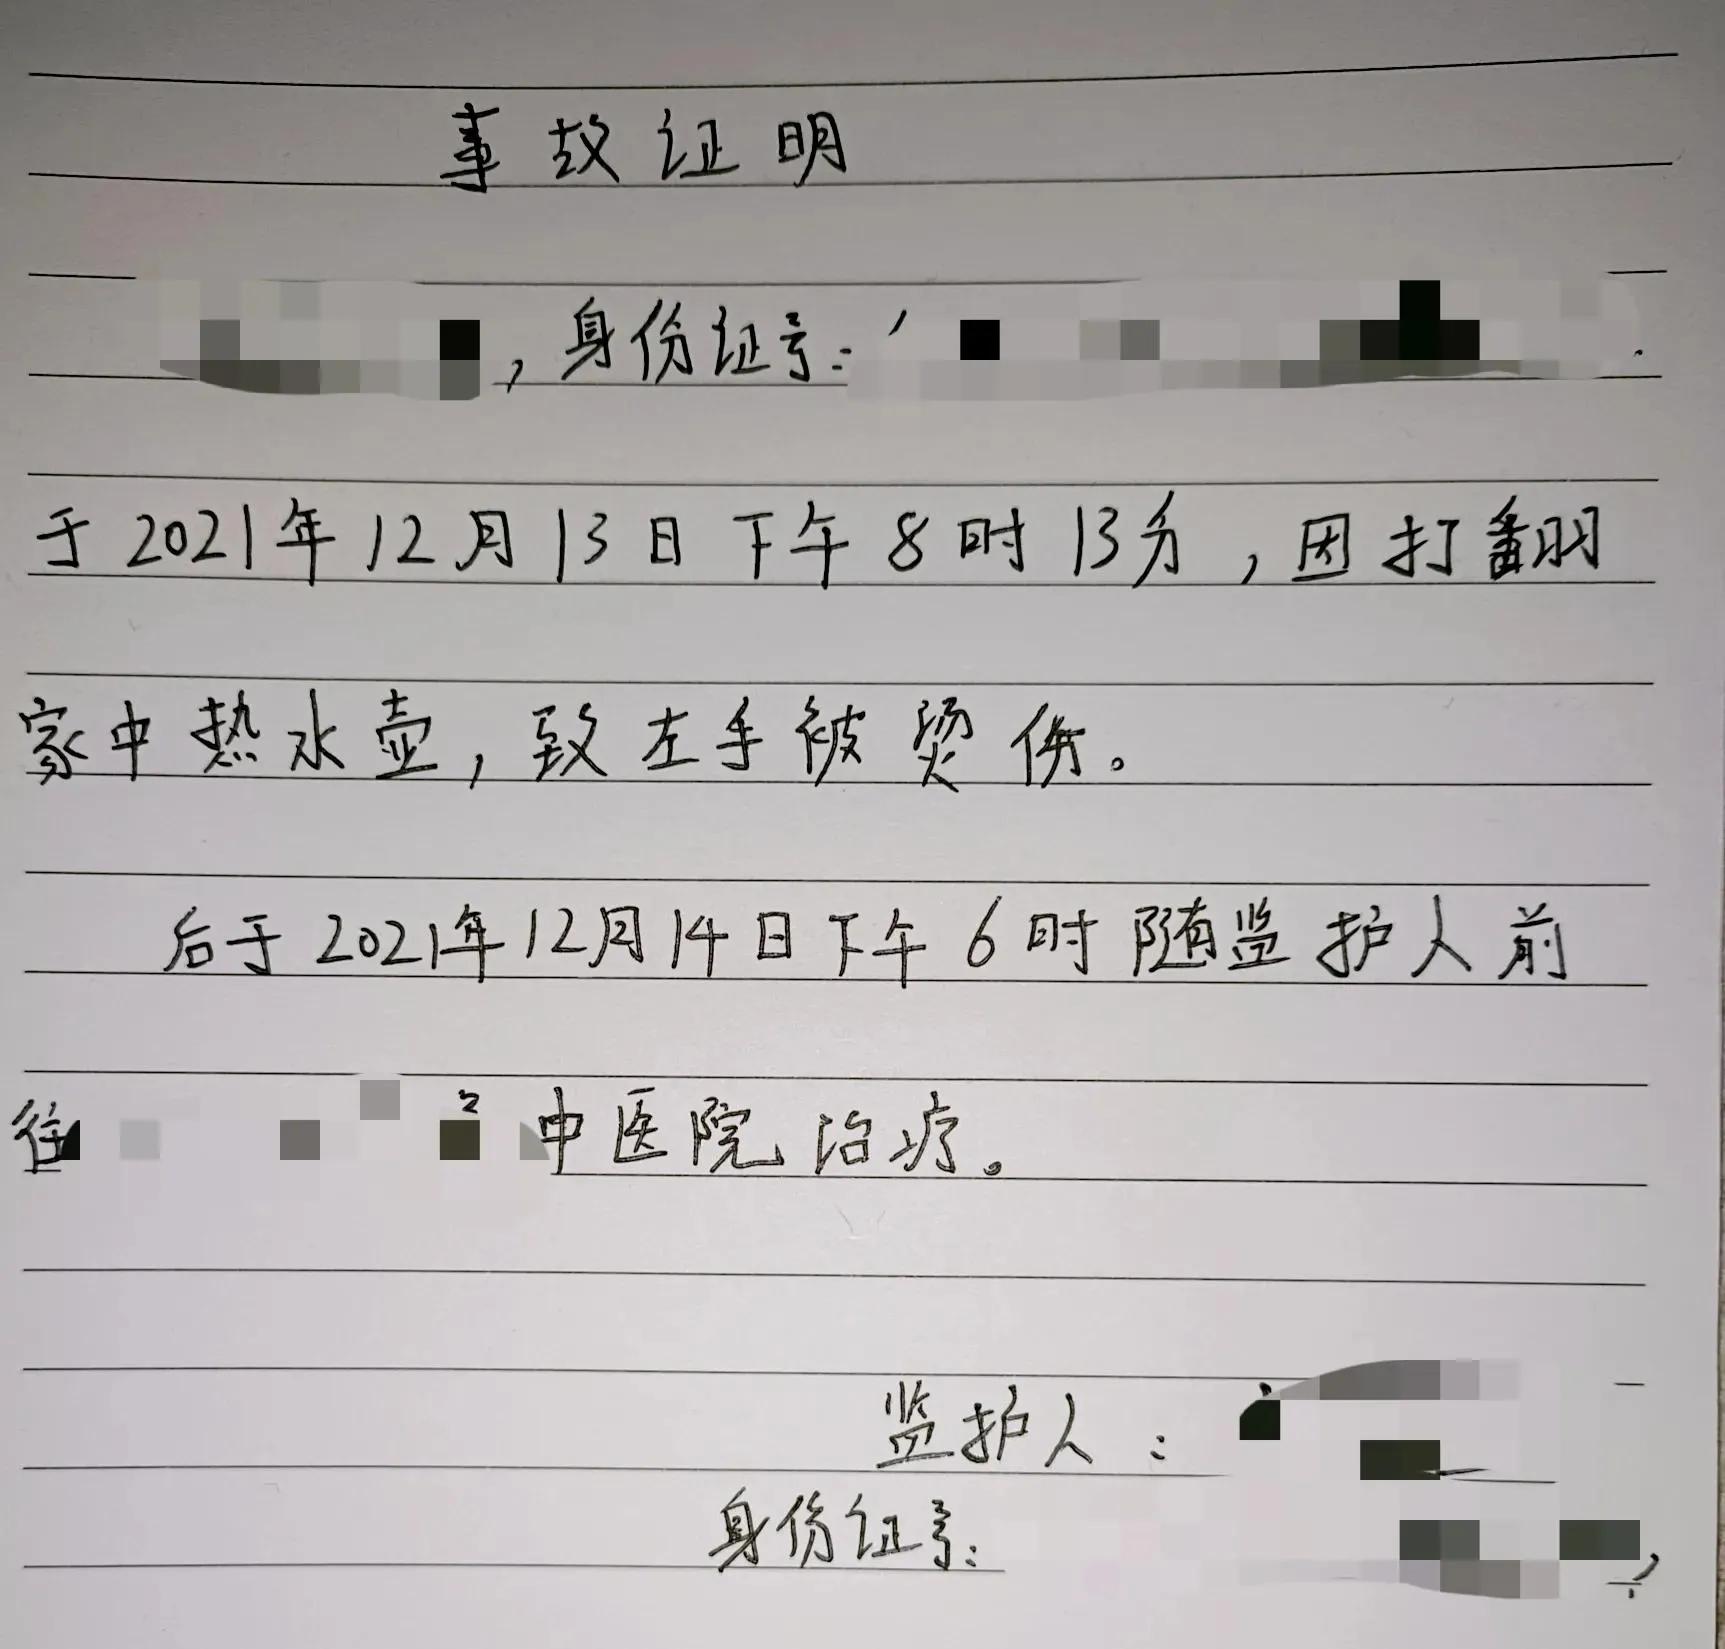 事故证明
，身份证号：
于2021年12月13日下午8时13分，因打翻
家中热水壶，致左手被烫伤。
后于2021年12月14日下午6时随监护人前
往 中医院治疗。
监护人：
身份证号：